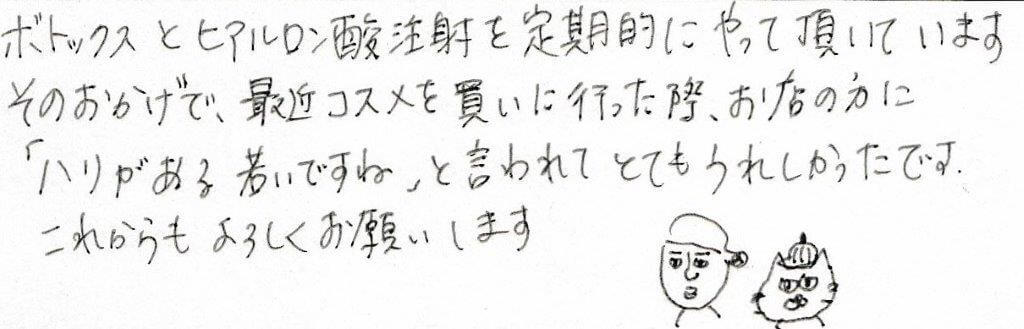 ボトックスとヒアルロン酸注射を定期的にやって頂いています
そのおかげで、最近コスメを買いに行った際、お店の方に
「ハリがある 若いですね」と言われてとてもうれしかったです.
これからもよろしくお願いします